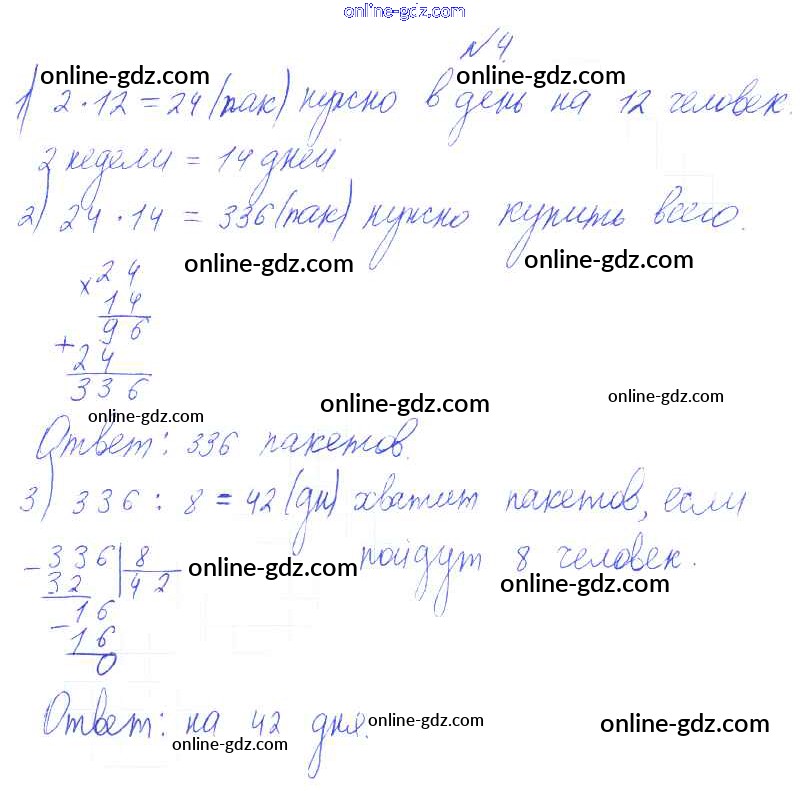 online-gdz.com
№4.
online-gdz.com online-gdz.com
1) 2·12=24(пак) нужно в день на 12 человек.
2 недели = 14 дней
2) 24·14 = 336(пак) нужно купить всего.
online-gdz.com online-gdz.com
× 24
14
96
+ 24
336
online-gdz.com online-gdz.com online-gdz.com
Ответ: 336 пакетов.
3) 336 : 8 = 42 (дн) хватит пакетов, если
пойдут 8 человек.
- 336 | 8
32 42
online-gdz.com online-gdz.com
16
- 16
0
Ответ: на 42 дня.
online-gdz.com online-gdz.com online-gdz.com